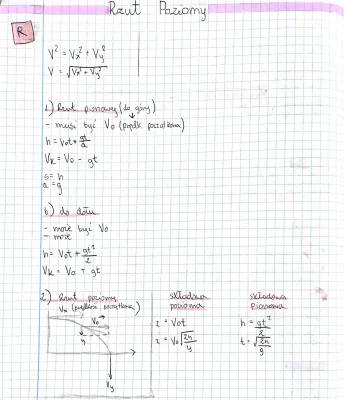 Rzut Poziomy
R
V² = Vx² + Vy²
V = √Vx² + Vy²
1) Rzut pionowy (do góry)
- musi być V0 (prędk. początkowa)
h = V0t + gt/2
Vk = V0 - gt
s = h
a = g
b) do dołu
- może być V0
- może
h = V0t + gt²/2
Vk = V0 + gt
2) Rzut poziomy
Vx (prędkość początkowa)
V0
Vy
składowa pozioma
z = V0t
z = V0√2h/g
składowa pionowa
h = gt²/2
t = √2h/g